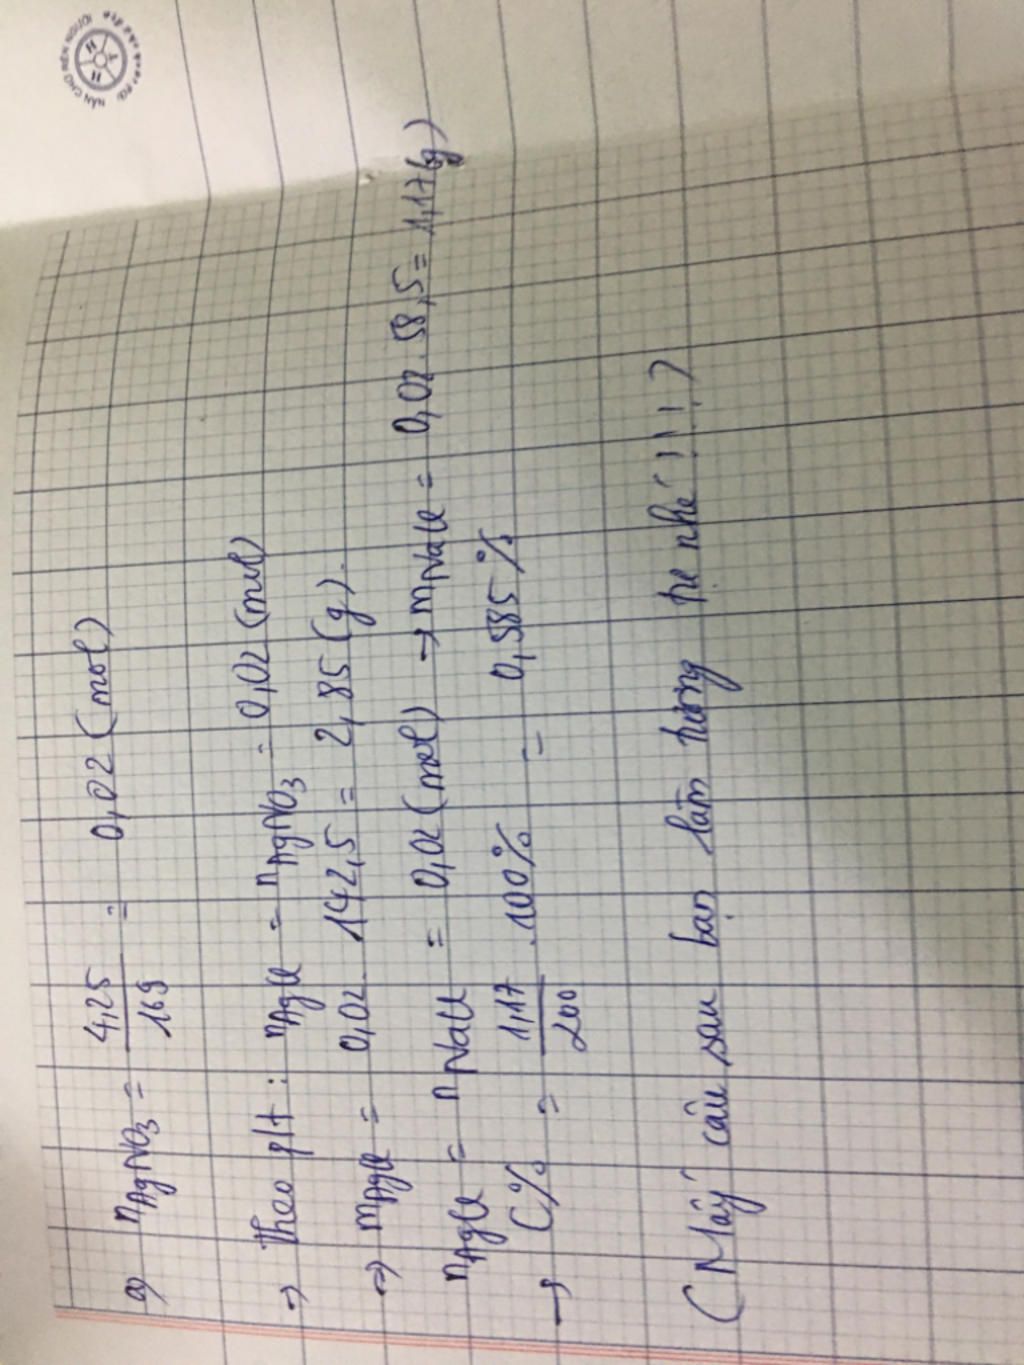 a) nAgNO3 = 4,25/169 = 0,02 (mol)
=> Theo ptt : nAgCl = nAgNO3 = 0,02 (mol)
=> mAgCl = 0,02 . 142,5 = 2,85 (g).
nAgCl = nNaCl = 0,02 (mol) → mNaCl = 0,02 . 58,5 = 1,17 (g)
→ C% = 1,17/200 . 100% = 0,585 %
( Mấy câu sau bạn làm tương tự nhé ! ! ! )